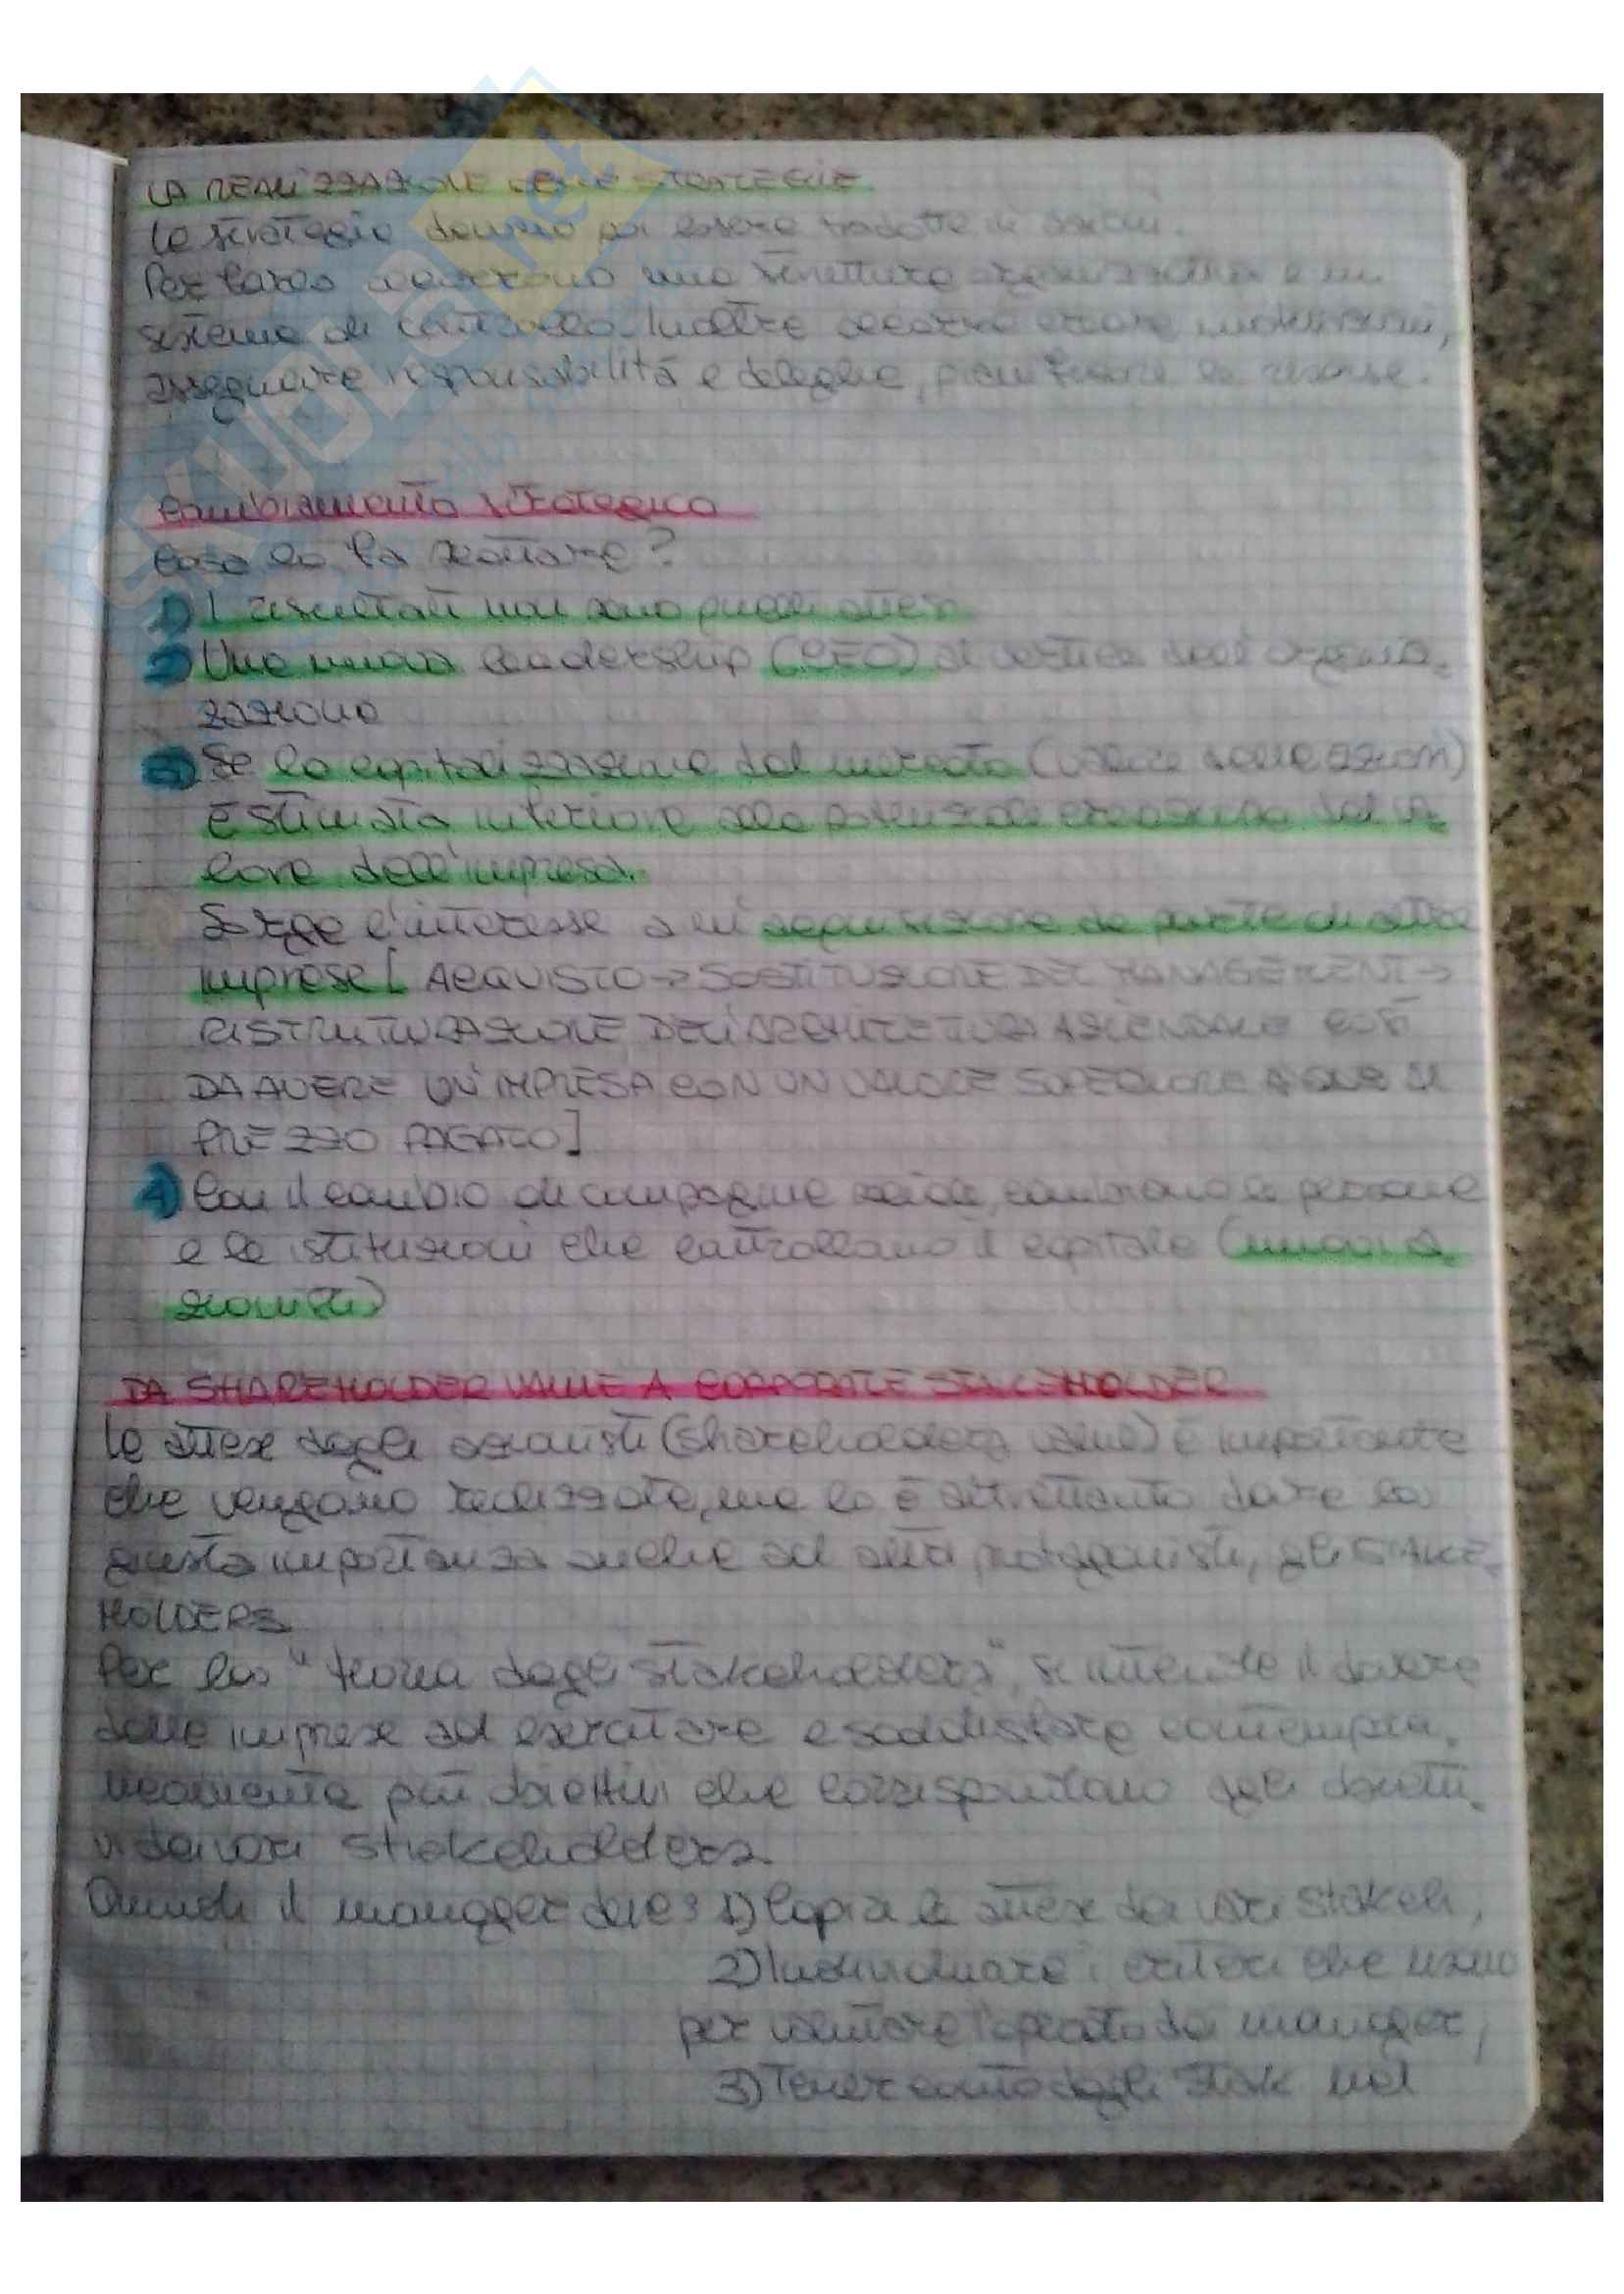 LA REALIZZAZIONE DELLE STRATEGIE.
Le strategie devono poi essere tradotte in azioni.
Per farlo occorrono una struttura organizzativa e un
sistema di controllo. Inoltre occorre creare motivazioni,
assegnare responsabilità e deleghe, pianificare le risorse.
Cambiamento strategico
Cosa lo fa scattare?
1) I risultati non sono quelli attesi
2) Una nuova leadership (CEO) al vertice dell'organiz-
zazione
3) Se la capitalizzazione del mercato (valore delle azioni)
è stimata inferiore alla potenziale creazione del va-
lore dell'impresa.
Sorge l'interesse a un'acquisizione da parte di altre
imprese [ ACQUISTO → SOSTITUZIONE DEL MANAGEMENT →
RISTRUTTURAZIONE DELL'ARCHITETTURA AZIENDALE COSÌ
DA AVERE UN'IMPRESA CON UN VALORE SUPERIORE
PREZZO PAGATO]
4) Con il cambio di compagine sociale, cambiano le persone
e le istituzioni che controllano il capitale (nuovi a-
zionisti)
DA SHAREHOLDER VALUE A CORPORATE STAKEHOLDER
Le attese degli azionisti (shareholders value) è importante
che vengano realizzate, ma lo è altrettanto dare la
giusta importanza anche ad altri protagonisti, gli STAKE-
HOLDERS
Per la "teoria degli stakeholders", si intende il dovere
delle imprese ad esercitare e soddisfare contempora-
neamente più obiettivi che corrispondano agli obietti-
vi dei vari stakeholders.
Quindi il manager deve: 1) Capire le attese dei vari stakeh,
2) Individuare i criteri che usano
per valutare l'operato dei manager,
3) Tener conto degli stak nel
SKUOLA.net